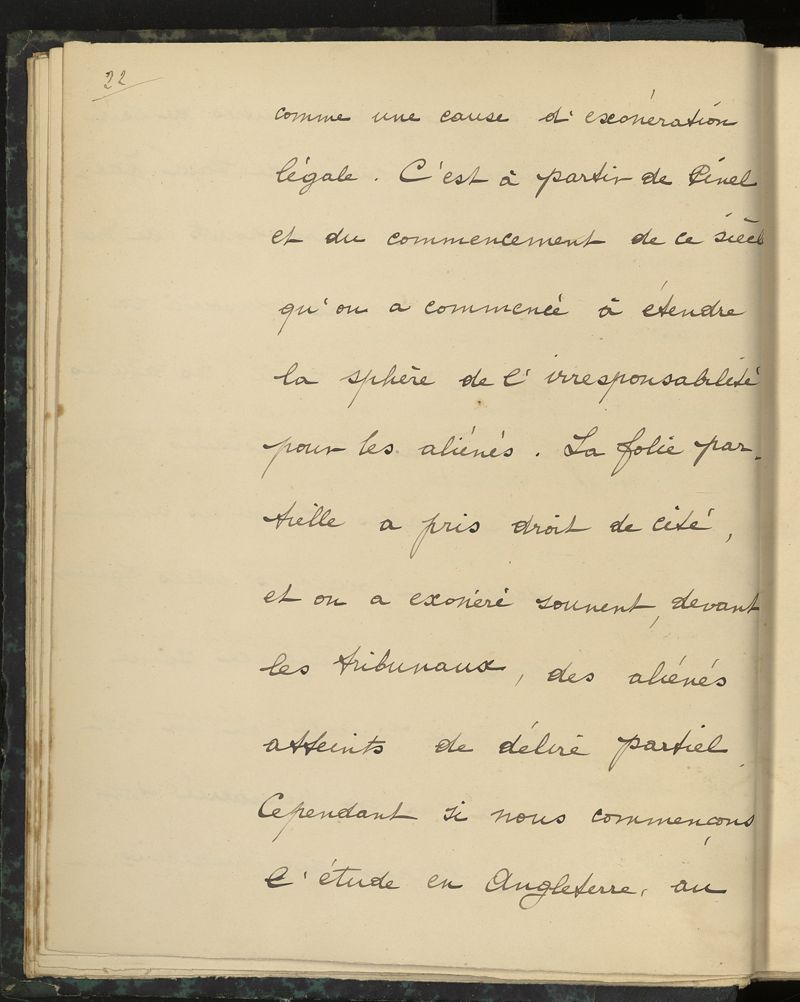 22
comme une cause d'exonération
légale. C'est à partir de Pinel
et du commencement de ce siècl
qu'on a commencé à étendre
la sphère de l'irresponsabilité
pour les aliénés. La folie par-
tielle a pris droit de cité,
et on a exonéré souvent, devant
les tribunaux, des aliénés
atteints de délire partiel.
Cependant si nous commençons
l'étude en Angleterre, au